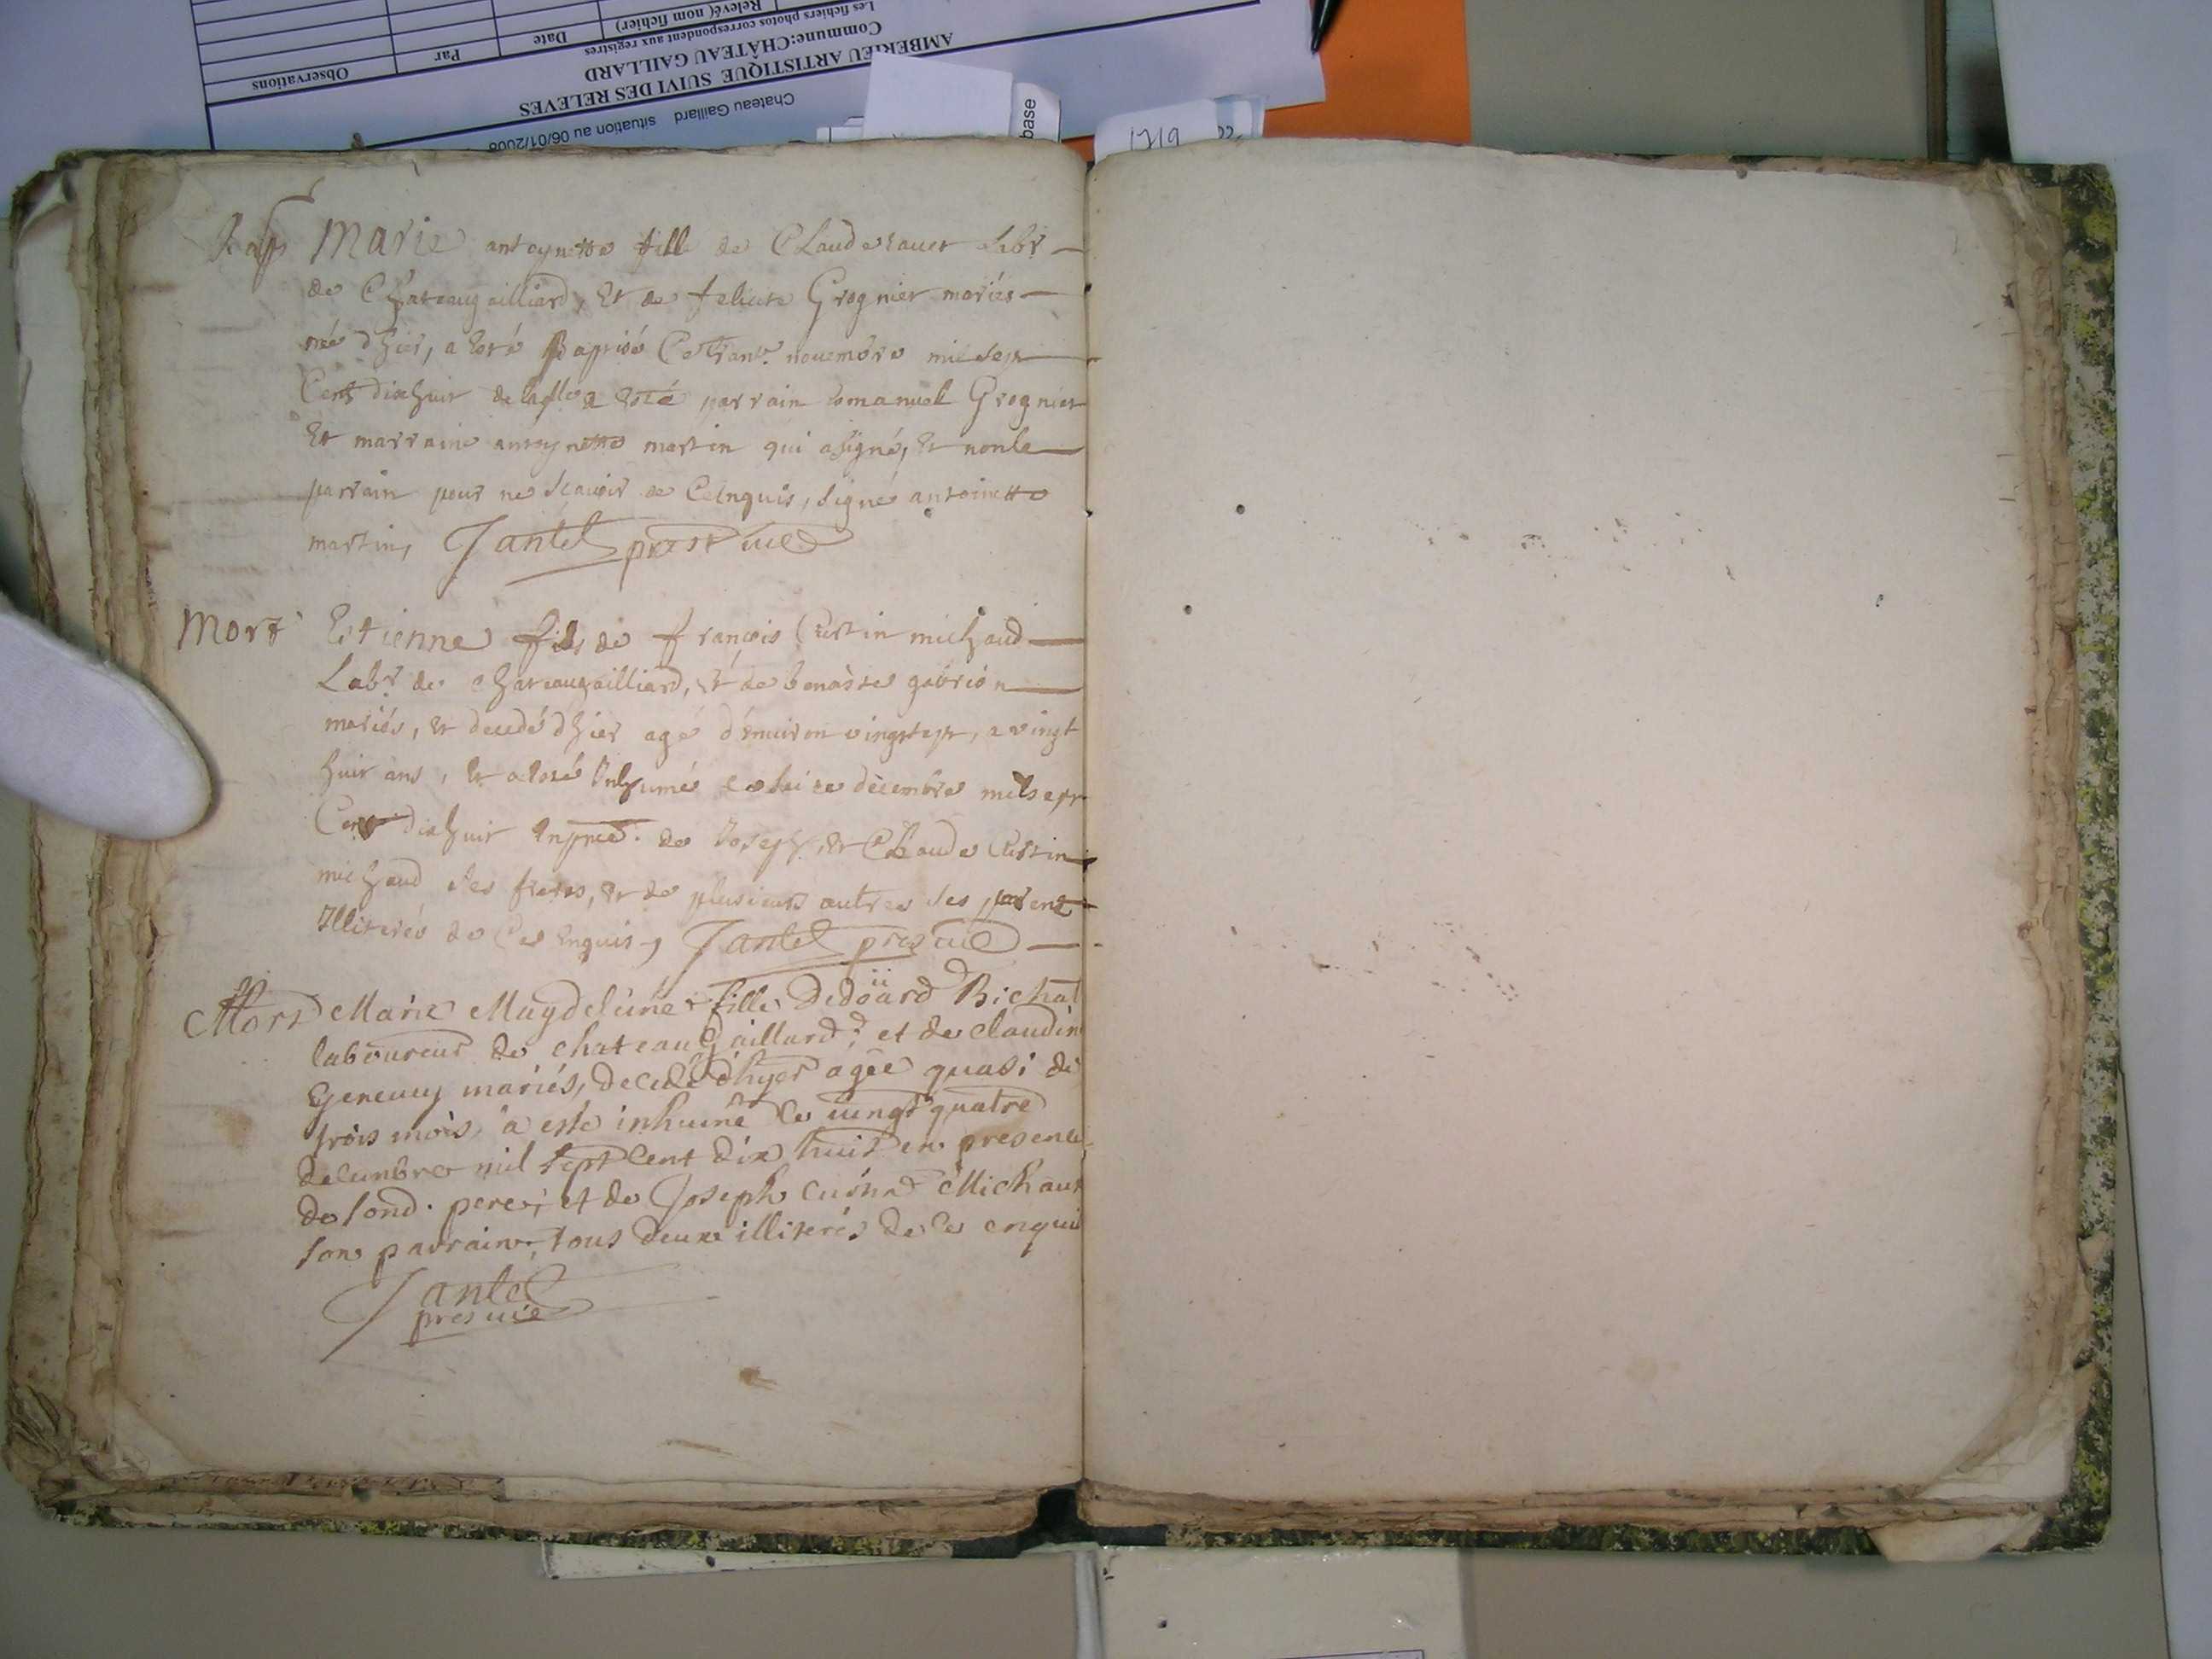 Chateau Gaillard situation au 06/01/2008
AMBERIEU ARTISTIQUE SUIVI DES RELEVES
Commune:CHÂTEAU GAILLARD
Les fichiers photos correspondent aux registres
Relevé( nom fichier) Date Par Observations
base
1719
Bap Marie antoynette fille de Claude Labr
de Chateaugailliard, Et de felicite Grognier mariés
née d'hier, a esté Baptisé Ce Trante novembre mil sept
Cent dixhuit a esté parrain Emanuel Grognier
Et marraine antoynette martin qui a signé, Et non le
parrain pour ne sçavoir de Ce Enquis, signé antoinette
martin, Jantet
Mort Estienne fils de françois Custin michaud
Labr de chateaugailliard, Et de benoiste gabrion
mariés, Et decedé d'hier agé d'environ vingtsept, a vingt
huit ans, Et a Esté Inhumé ce seize decembre mil sept
Cent dixhuit de Joseph, Et Claude Custin
michaud ses freres, Et de plusieurs autres ses parent
Illiterés de Ce Enquis, Jantet
Mort Marie Magdeleine fille Dedoüard Bichat
laboureur de chateau Gaillard et de claudin
mariés, decedé d'hyer agée quasi de
trois mois, a esté inhumé le vingt quatre
decembre mil sept cent dix huit en presence
de sond. pere, et de Joseph Michaut
son parrain, tous deux illiterés de ce enquis
Jantet